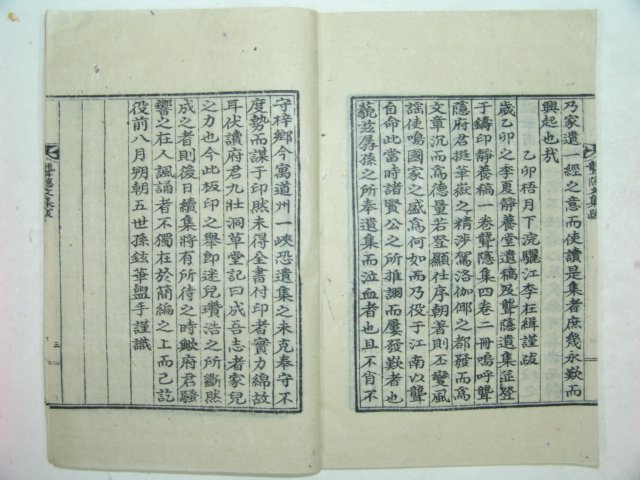 乃家遺一經之意而使讀是集者庶幾永歎而
興起也哉
乙卯梧月下浣驪江李在緝謹跋
歲乙卯之季夏靜養堂遺稿及聾隱遺集並登
于鑄印靜養稿一卷聾隱集四卷二冊嗚呼聾
隱府君挺筆嶽之精涉駕洛伽倻之都發而爲
文章沉而爲德量若登顯仕序朝著則丕變風
謠使鳴國家之盛爲何如而乃役于江南以聾
自命此當時諸賢公之所推詡而屢發歎者也
藐玆孱孫之所奉遺集而泣血者也且不肖不
守梓鄉今寓道州一峽恐遺集之未克奉守不
度勢而謀于印然未得全書付印者實力綿故
耳伏讀府君九壯洞草堂記曰成吾志者家兒
之力也今此板印之擧即迷兒瓚浩之所斷然
成之者則後日續集將有所待之時歟府君騷
響之在人諷誦者不獨在於簡編之上而已訖
役前八月朔朝五世孫鉉筆盥手謹識
聾隱文集跋
三